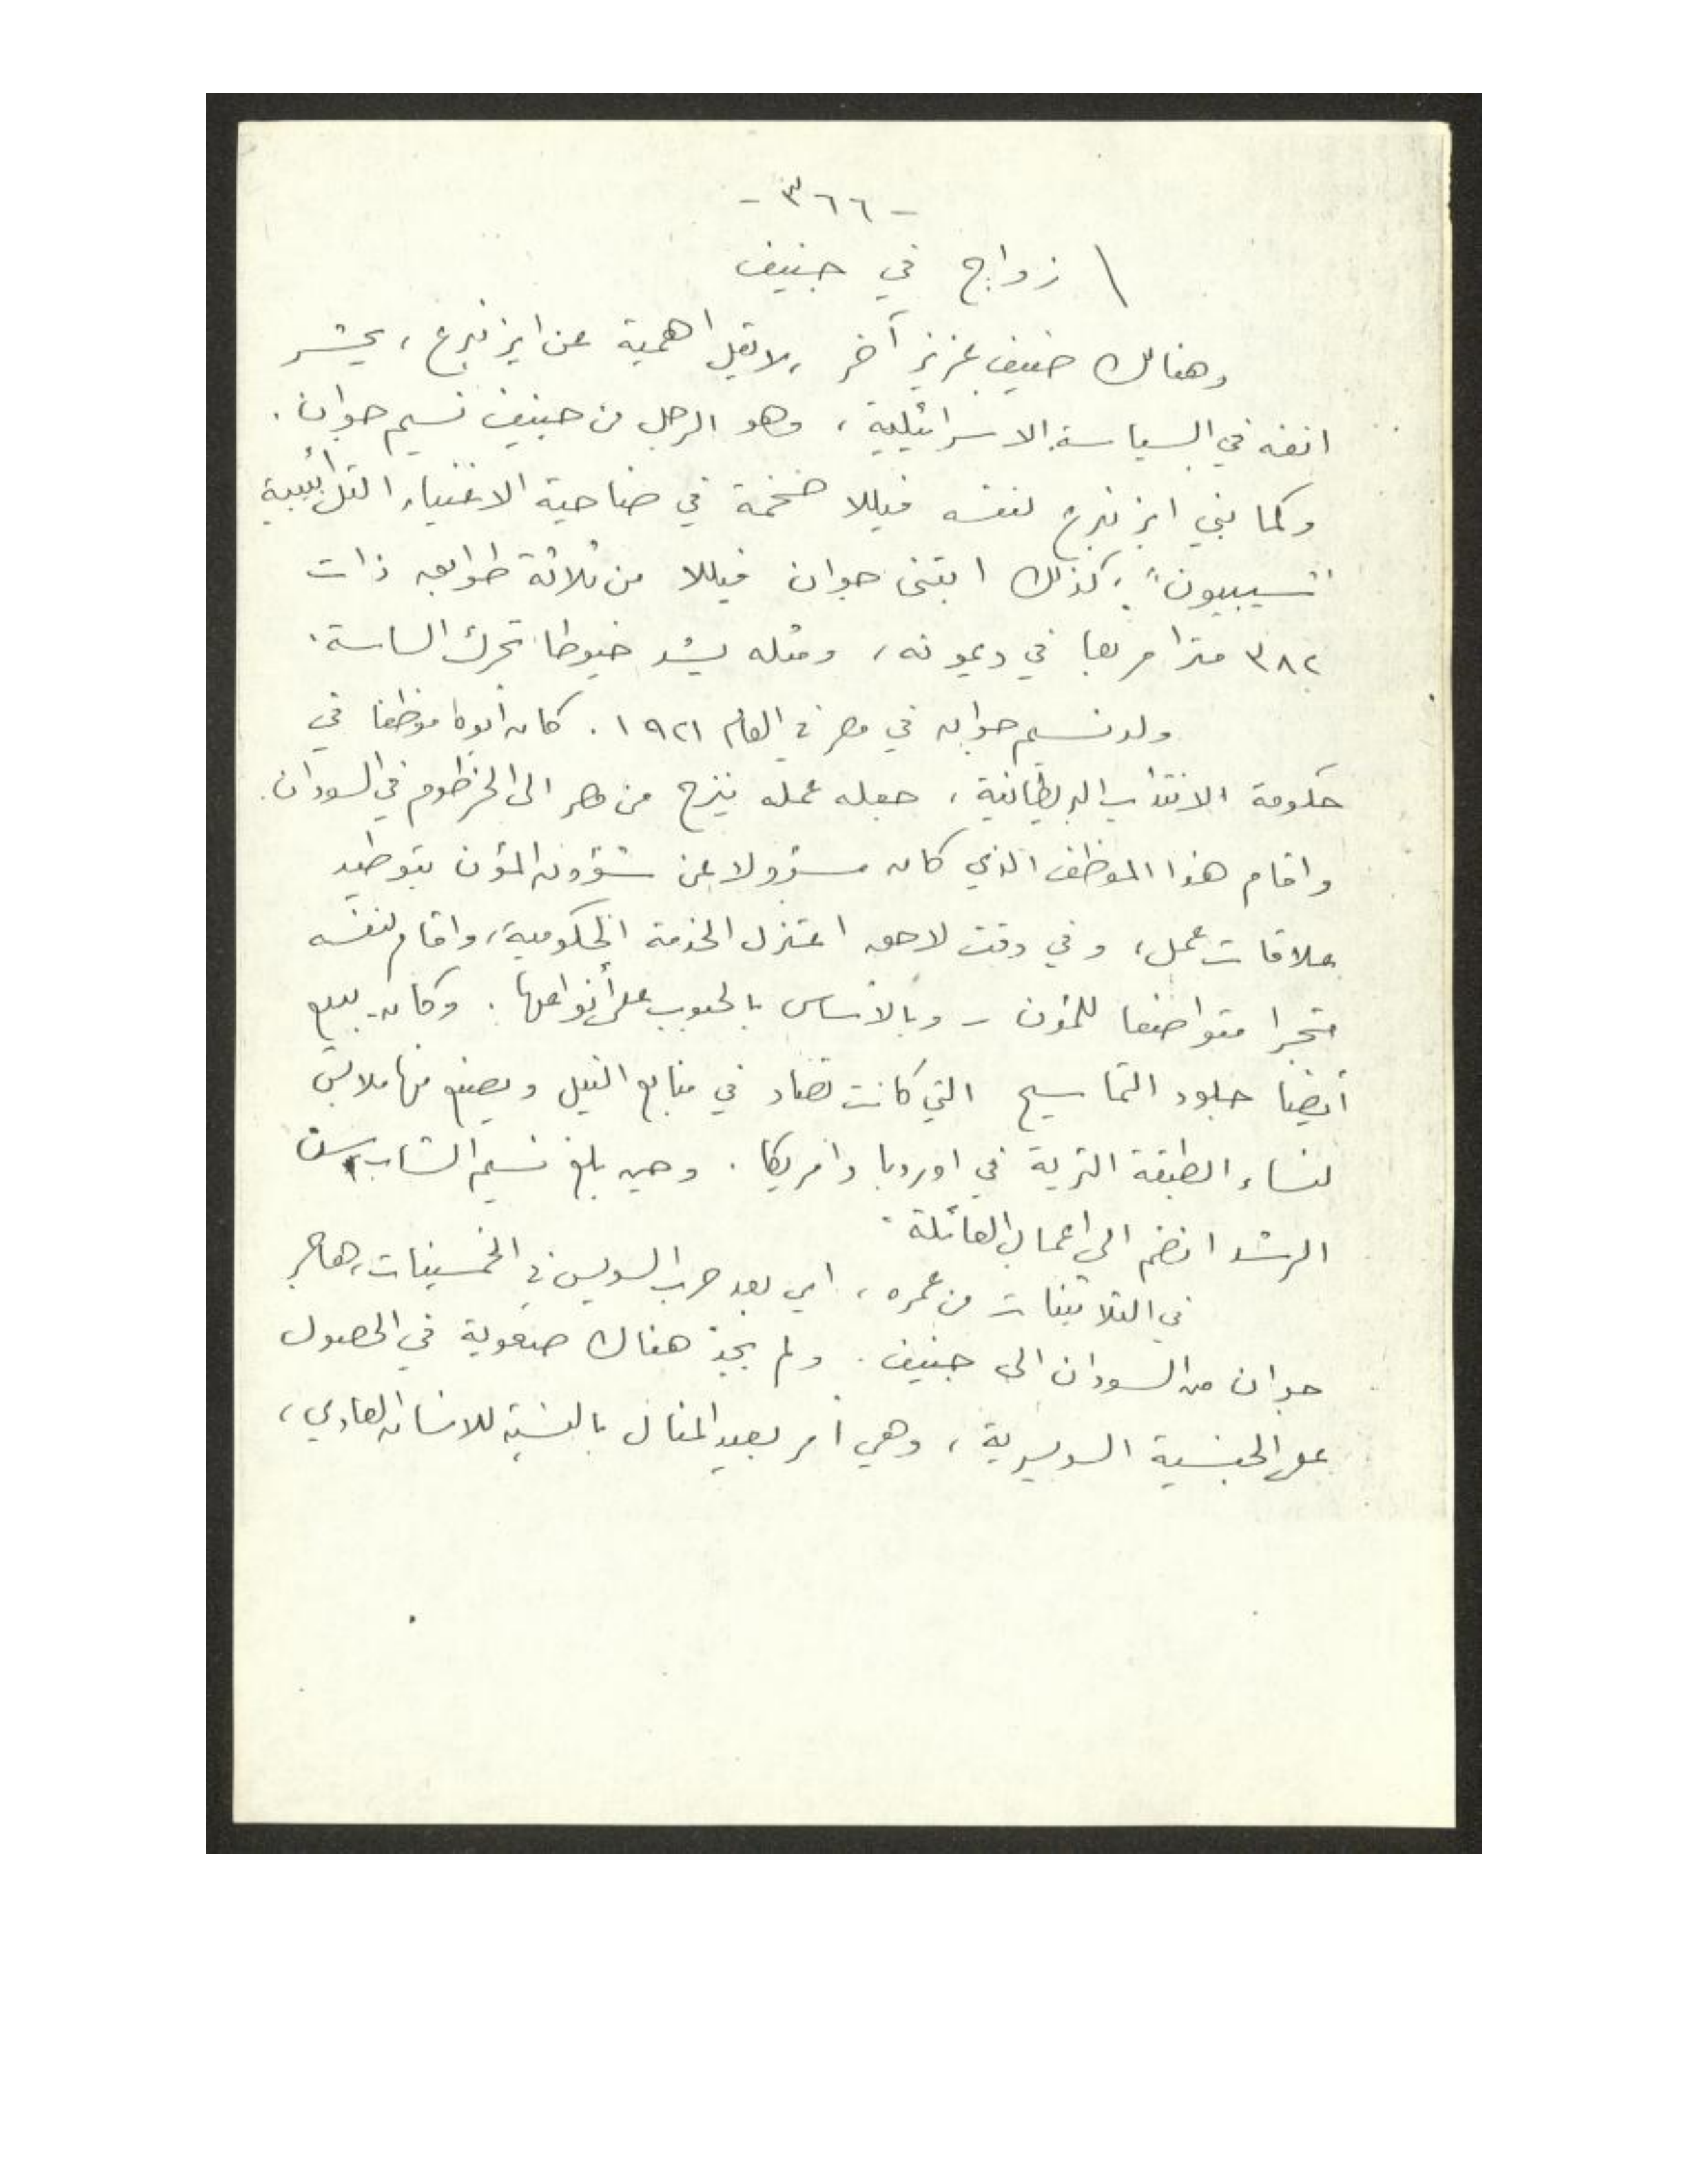 - ٣٦٦ -
\ زواج في جنيف
وهنالك ضيف عزيز آخر ، لا تقل اهمية عن ايزنبرغ ، يحشر
انفه في السياسة الاسرائيلية ، وهو الرجل من جنيف نسيم جوان .
وكما بني ايزنبرغ لنفسه فيللا ضخمة في ضاحية الاغنياء التل أبيبية
"تسيبيون" ، كذلك ابتنى جوان فيللا من ثلاثة طوابق ذات
٣٨٢ مترا مربعا في ، ومثله يشد خيوطا تحرك الساسة .
ولد نسيم جوان في مصر في العام ١٩٢١ . كان أبوه موظفا في
حكومة الانتداب البريطانية ، جعله عمله ينزح من مصر الى الخرطوم في السودان .
واقام هذا الموظف الذي كان مسؤولا عن شؤون المؤن بتوطيد
علاقات عمل ، وفي وقت لاحق اعتزل الخدمة الحكومية ، واقام لنفسه
متجرا متواضعا للمؤن - وبالأساس بالحبوب على أنواعها . وكان يبيع
أيضا جلود التماسيح التي كانت تصاد في منابع النيل ويصنع منها ملابس
لنساء الطبقة الثرية في اوروبا وامريكا . وحين بلغ نسيم الشاب سن
الرشد انضم الى اعمال العائلة .
في الثلاثينات من عمره ، اي بعد حرب السويس في الخمسينات ، هاجر
جوان من السودان الى جنيف . ولم يجد هناك صعوبة في الحصول
على الجنسية السويسرية ، وهي أمر بعيد المنال بالنسبة للانسان العادي ،